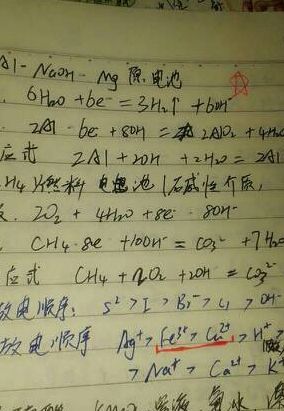 Al-NaOH-Mg 原电池
6H₂O+6e⁻=3H₂↑+6OH⁻
2Al-6e+8OH=2AlO₂+4H₂O
应式 2Al+2OH+2H₂O=2Al
CH₄燃料电池(碱性介质,
2O₂+4H₂O+8e 8OH⁻
CH₄-8e+10OH⁻=CO₃²⁻+7H₂
应式 CH₄+2O₂+2OH=CO₃²⁻
放电顺序: S²⁻>I⁻>Br⁻>Cl>OH⁻
放电顺序 Ag⁺>Fe³⁺>Cu²⁺>H⁺
>Na⁺>Ca²⁺>K⁺